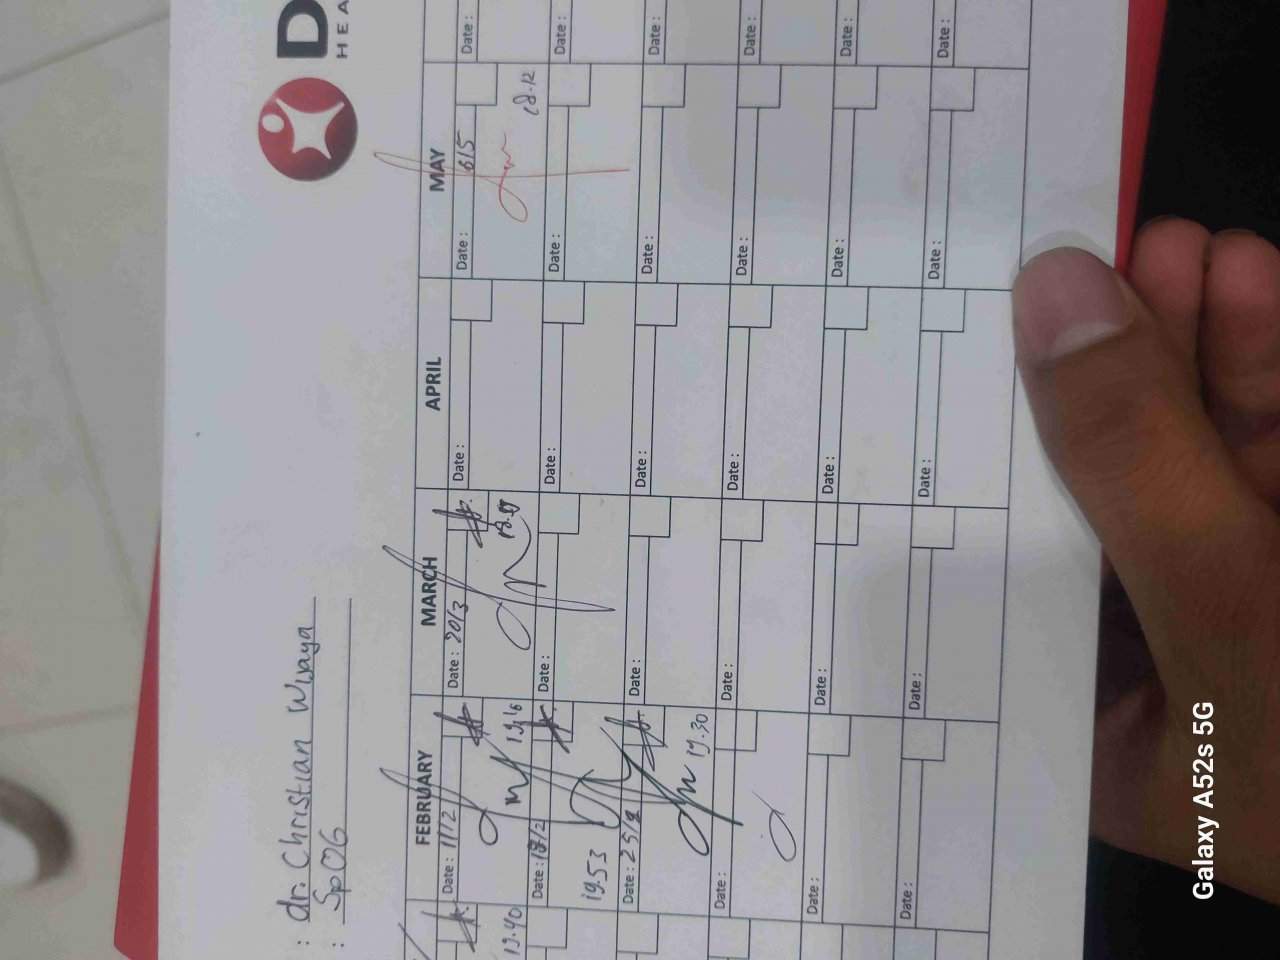 D
HEA
: dr. Christian Wijaya
: SpOG
FEBRUARY MARCH APRIL MAY
Date : 11/2 Date : 20/3 Date : Date : 6/5 Date :
19.40 19.16 18.12
Date : 18/2 Date : Date : Date : Date :
19.53
Date : 25/2 Date : Date : Date : Date :
19.30
Date : Date : Date : Date : Date :
Date : Date : Date : Date : Date :
Date : Date : Date : Date : Date :
Galaxy A52s 5G